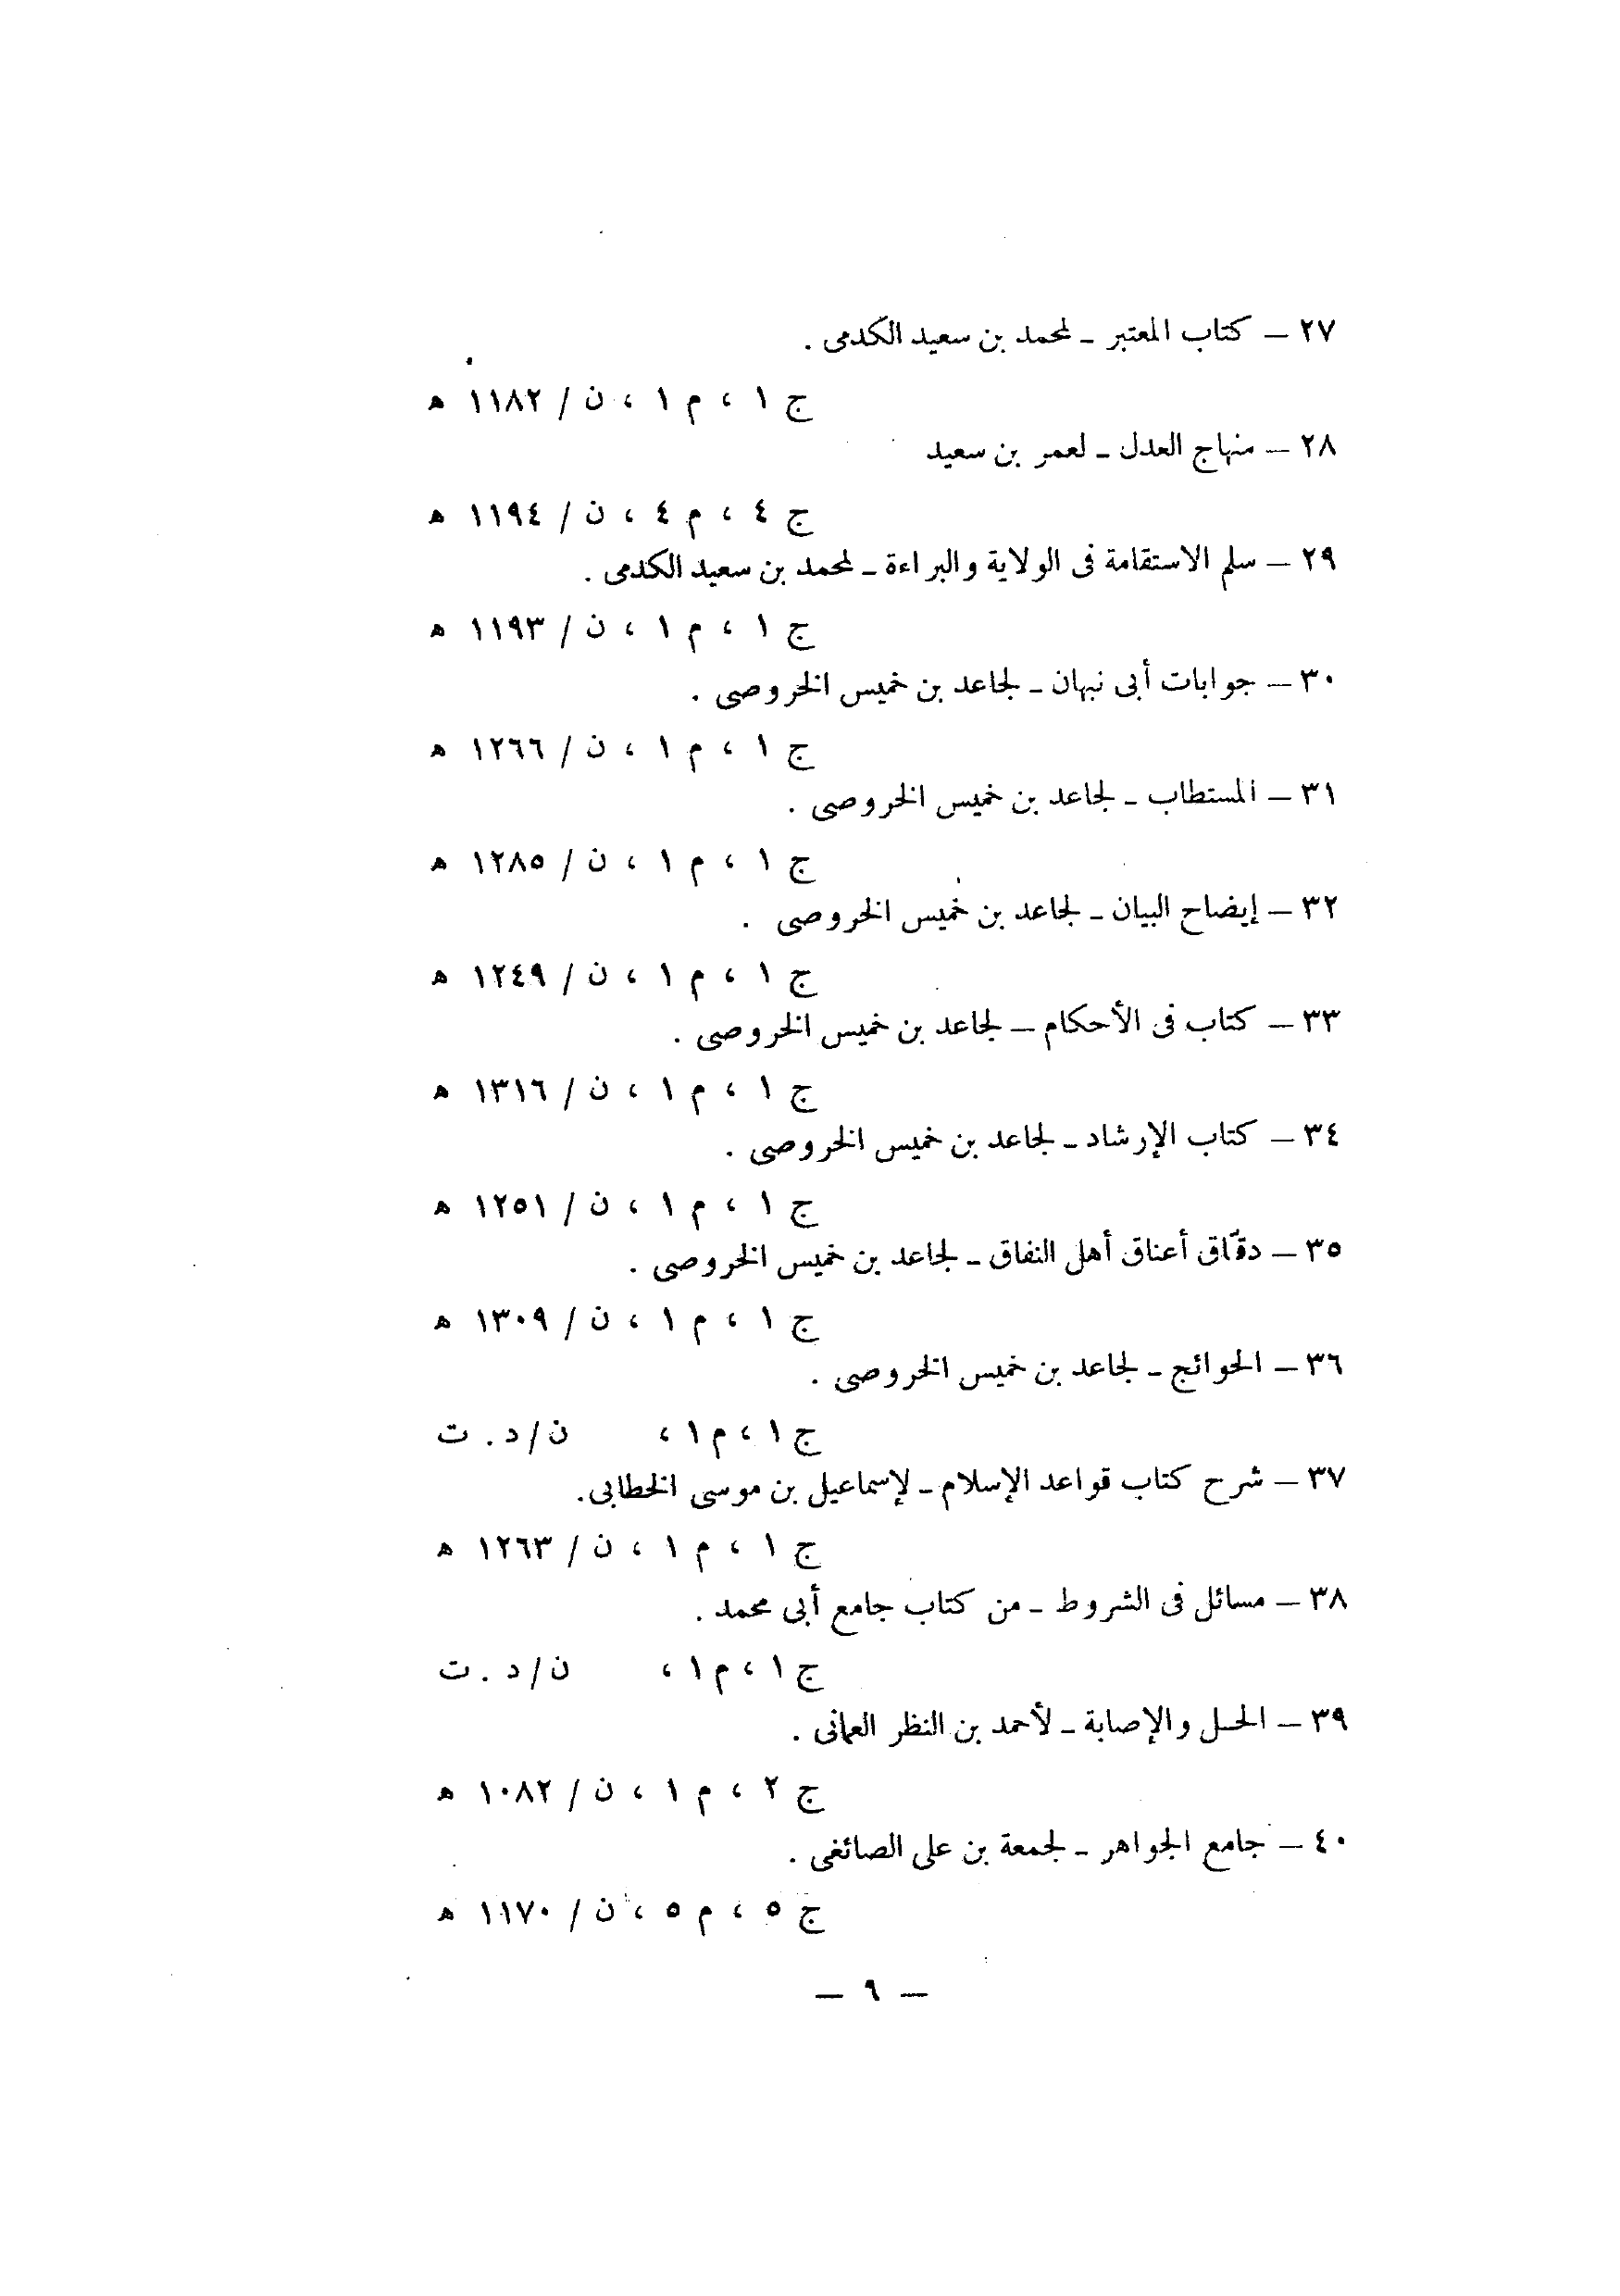 ٢٧ – كتاب المعتبر – لمحمد بن سعيد الكدمى .
ج ١ ، م ١ ، ن / ١١٨٢ ه
٢٨ – منهاج العدل – لعمر بن سعيد
ج ٤ ، م ٤ ، ن / ١١٩٤ ه
٢٩ – سلم الاستقامة فى الولاية والبراءة – لمحمد بن سعيد الكدمى .
ج ١ ، م ١ ، ن / ١١٩٣ ه
٣٠ – جوابات أبى نبهان – لجاعد بن خميس الخروصى .
ج ١ ، م ١ ، ن / ١٢٦٦ ه
٣١ – المستطاب – لجاعد بن خميس الخروصى .
ج ١ ، م ١ ، ن / ١٢٨٥ ه
٣٢ – إيضاح البيان – لجاعد بن خميس الخروصى .
ج ١ ، م ١ ، ن / ١٢٤٩ ه
٣٣ – كتاب فى الأحكام – لجاعد بن خميس الخروصى .
ج ١ ، م ١ ، ن / ١٣١٦ ه
٣٤ – كتاب الإرشاد – لجاعد بن خميس الخروصى .
ج ١ ، م ١ ، ن / ١٢٥١ ه
٣٥ – دقّاق أعناق أهل النفاق – لجاعد بن خميس الخروصى .
ج ١ ، م ١ ، ن / ١٣٠٩ ه
٣٦ – الحوائج – لجاعد بن خميس الخروصى .
ج ١ ، م ١ ، ن / د . ت
٣٧ – شرح كتاب قواعد الإسلام – لإسماعيل بن موسى الخطابى .
ج ١ ، م ١ ، ن / ١٢٦٣ ه
٣٨ – مسائل فى الشروط – من كتاب جامع أبى محمد .
ج ١ ، م ١ ، ن / د . ت
٣٩ – الحل والإصابة – لأحمد بن النظر العمانى .
ج ٢ ، م ١ ، ن / ١٠٨٢ ه
٤٠ – جامع الجواهر – لجمعة بن على الصائغى .
ج ٥ ، م ٥ ، ن / ١١٧٠ ه
– ٩ –